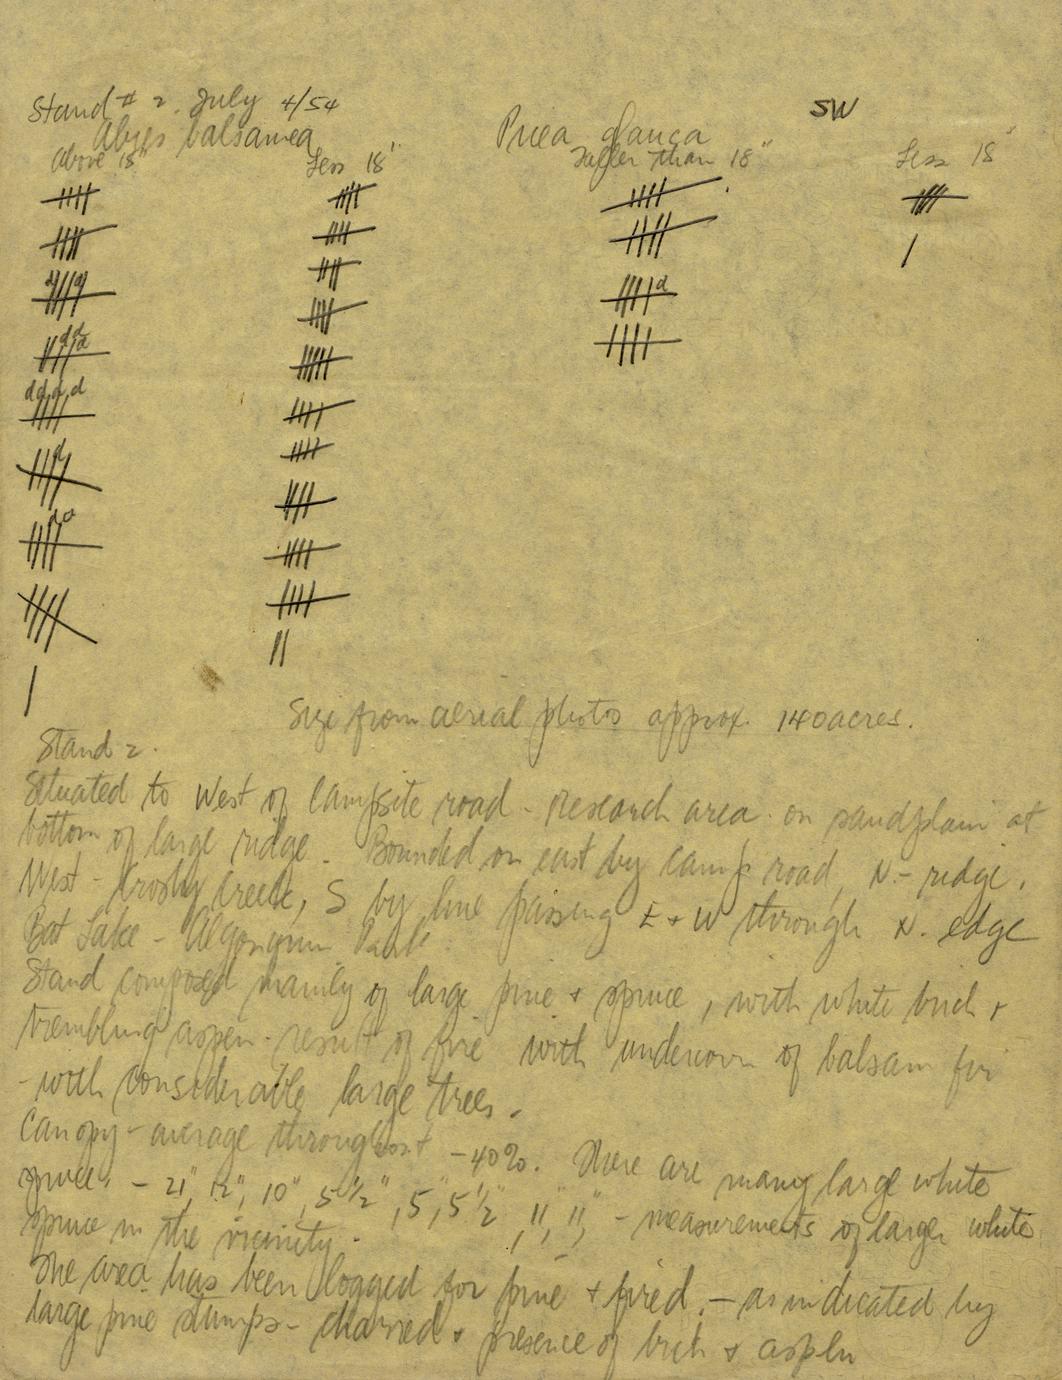 Stand # 2. July 4/54
SW
Abies balsamea
Picea glauca
Above 18"
Less 18"
Taller than 18"
Less 18"
d d
d d d
d d d d
d
d d
d
Size from aerial photos approx. 140 acres.
Stand 2.
Situated to West of Campsite road - Research area on sandplain at
bottom of large ridge. Bounded on east by camp road, N.- ridge,
West - Crosby Creek, S by line passing E + W through N. edge
Bat Lake - Algonquin Park.
Stand composed mainly of large pine + spruce, with white birch +
trembling aspen - result of fire with undercover of balsam fir
- with considerable large trees.
Canopy - average throughout - 40%. There are many large white
spruce. - 21", 12", 10", 5 1/2", 5", 5 1/2", 11", 11", - measurements of larger white
spruce in the vicinity.
The area has been logged for pine + fired. - as indicated by
large pine stumps - charred + presence of birch + aspen